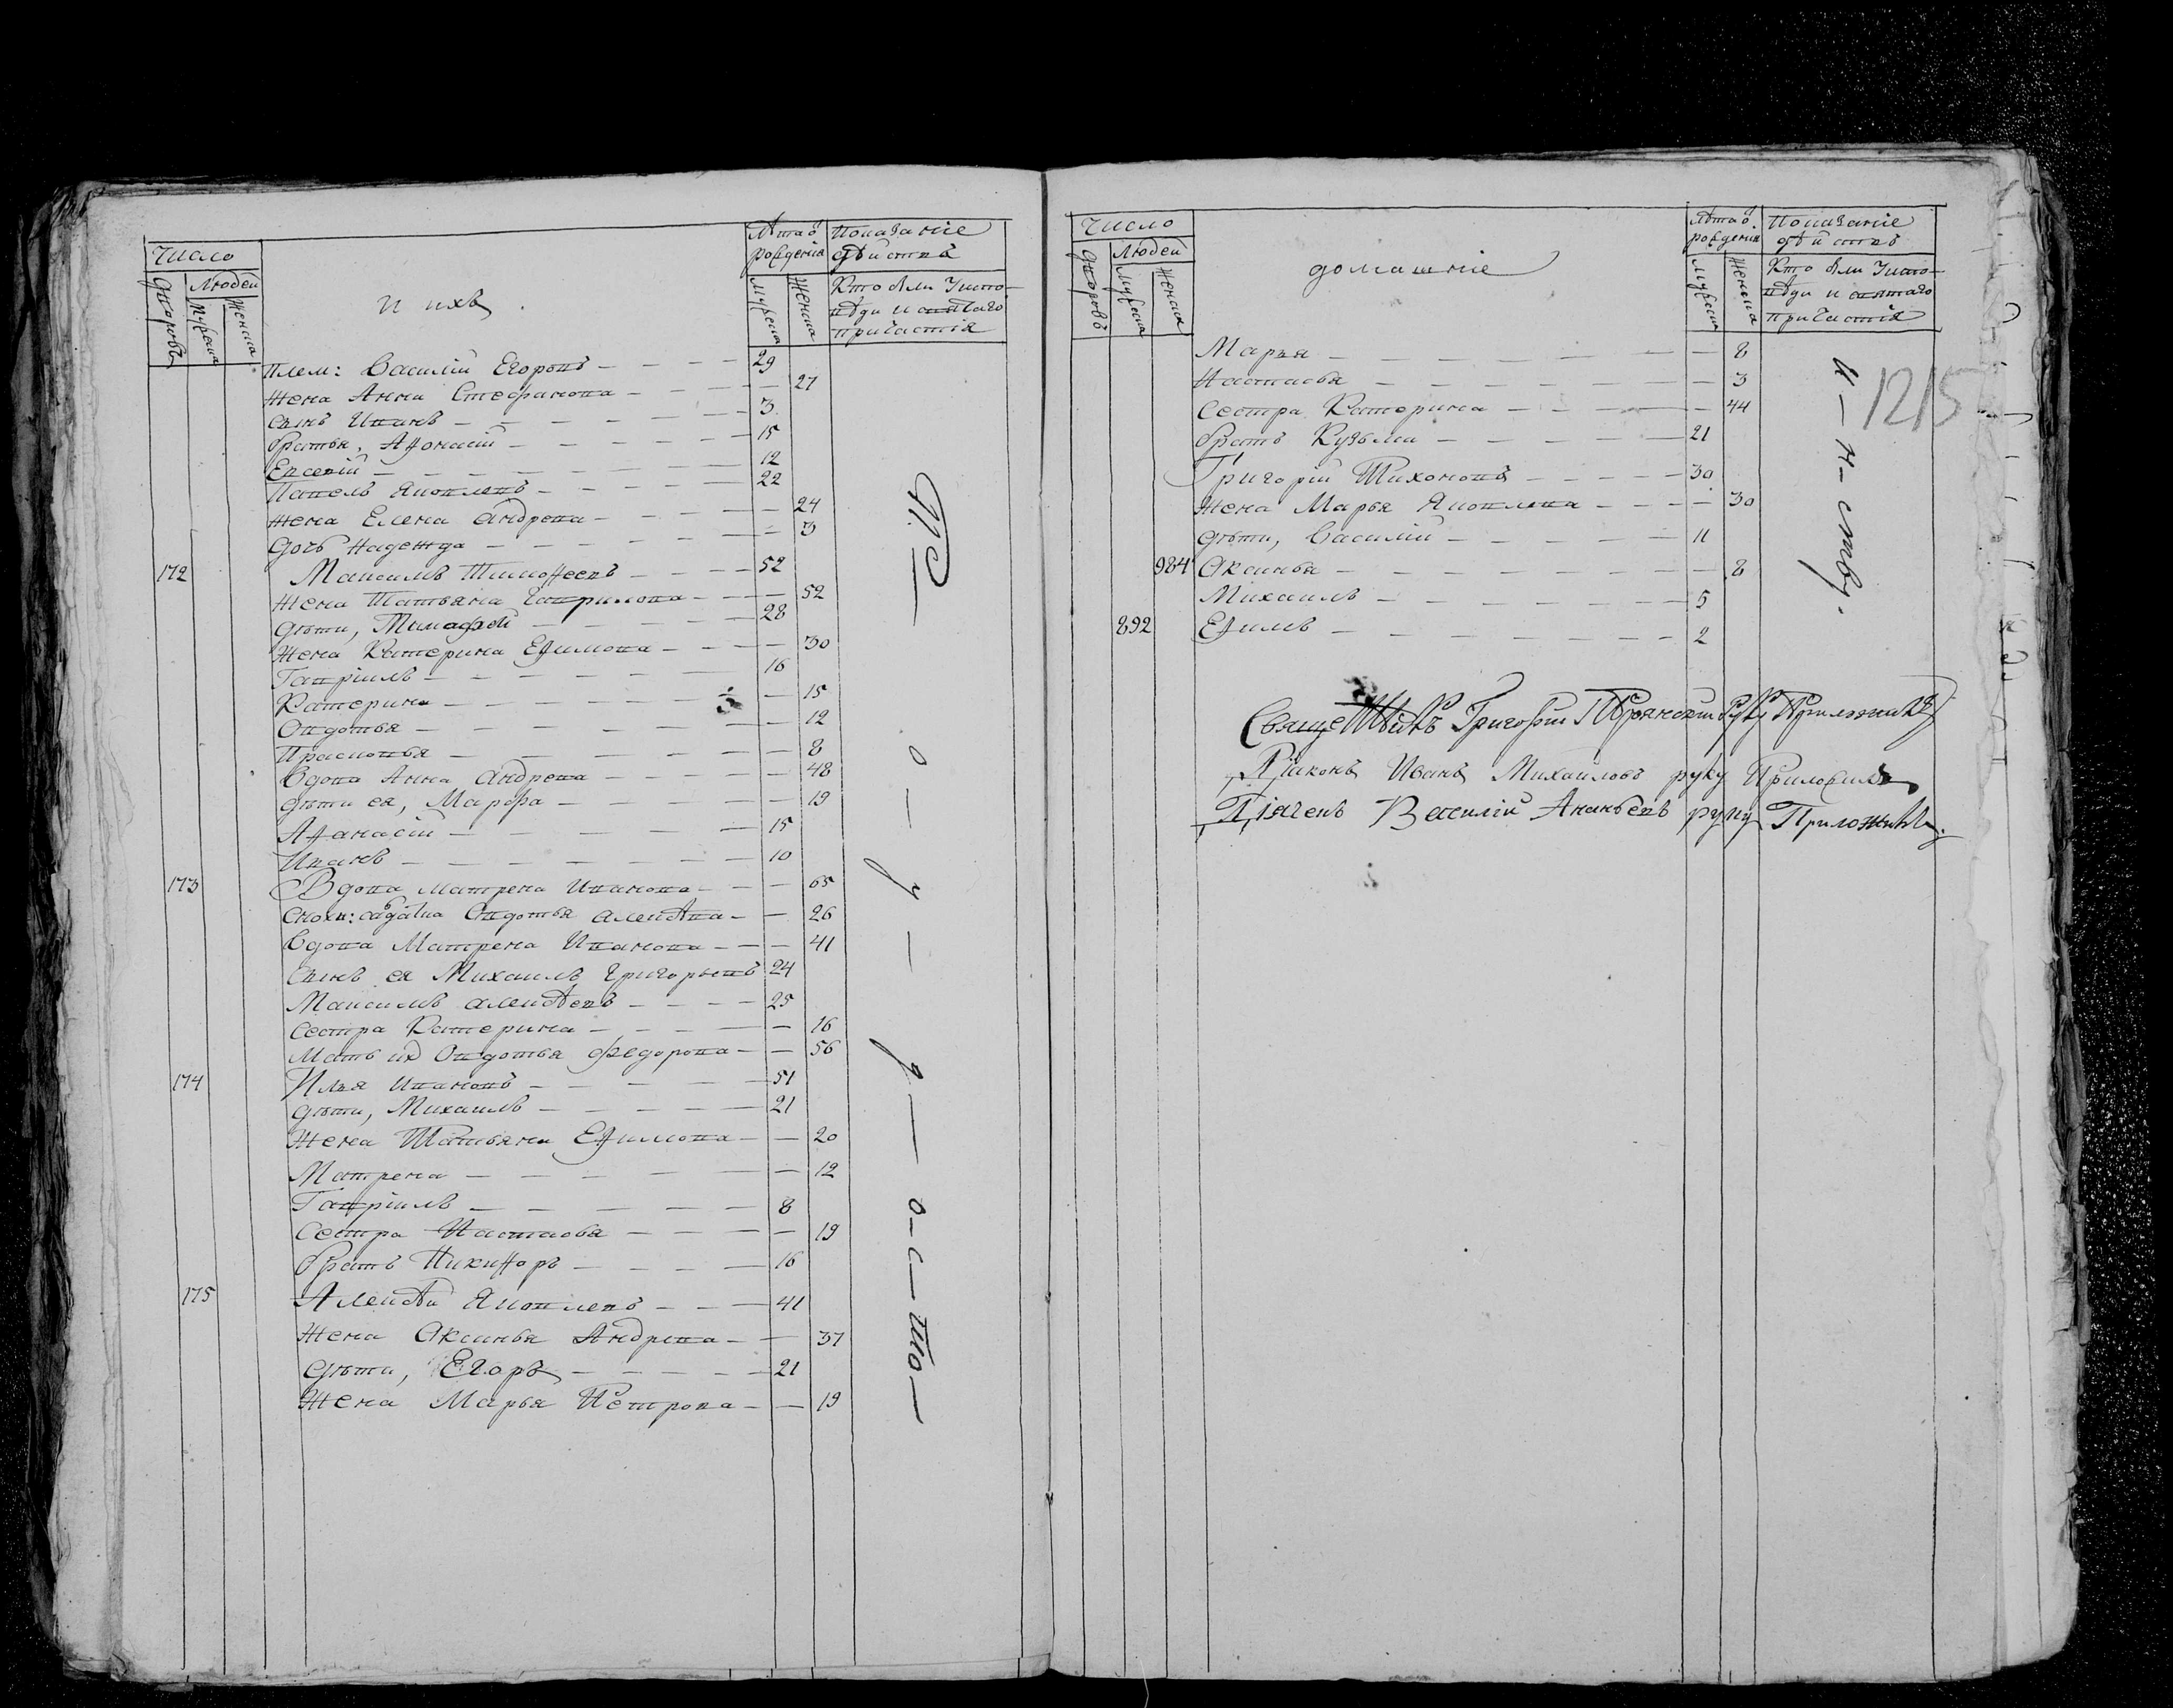 Число
Дворовъ
Людей
Мужеска
Женска
и ихъ
Лѣта ѿ рожденія
Мужеска
Женска
Показаніе дѣйства
Кто был у испо-
вѣди и святаго
причастія
плем: Василій Егоровъ 29
жена Анна Стефанова 27
сынъ Иванъ 3
братья, Аѳонасій 15
Евсевій 12
Павелъ Яковлевъ 22
жена Елена Андрева 24
дочь Надежда 3
172 Максимъ Тимоѳеевъ 52
жена Татьяна Гаврилова 52
дѣти, Тимофей 28
жена Катерина Еѳимова 30
Гавріилъ 16
Катерина 15
Овдотья 12
Прасковья 8
Вдова Анна Андрева 48
дѣти ея, Марфа 19
Аѳанасій 15
Иванъ 10
173 Вдова Матрена Иванова 65
сноха: солдатка Овдотья Алексѣева 26
Вдова Матрена Иванова 41
Сынъ ея Михаилъ Григорьевъ 24
Максимъ Алексѣевъ 25
сестра Катерина 16
Мать их Овдотья Федорова 56
174 Илья Ивановъ 51
дѣти, Михаилъ 21
жена Татьяна Еѳимова 20
Матрена 12
Гавріилъ 8
Сестра Настасья 19
братъ Никиѳоръ 16
175 Алексѣй Яковлевъ 41
жена Аксинья Андрева 37
дѣти, Егоръ 21
жена Марья Петрова 19
о — у — — о — с — то —
Число
Дворовъ
Людей
Мужеска
Женска
домашніе
Лѣта ѿ рожденія
Мужеска
Женска
Показаніе дѣйства
Кто был у испо-
вѣди и святаго
причастія
1215
Марья 8
Настасья 3
Сестра Катерина 44
братъ Кузьма 21
Григорій Тихоновъ 30
жена Марья Яковлева 30
дѣти, Василій 11
984 Аксинья 8
Михаилъ 5
892 Еѳимъ 2
Григорій руку приложилъ
Діаконъ Иванъ Михайловъ руку приложилъ
Дьячекъ Василій Ананьевъ руку приложилъ